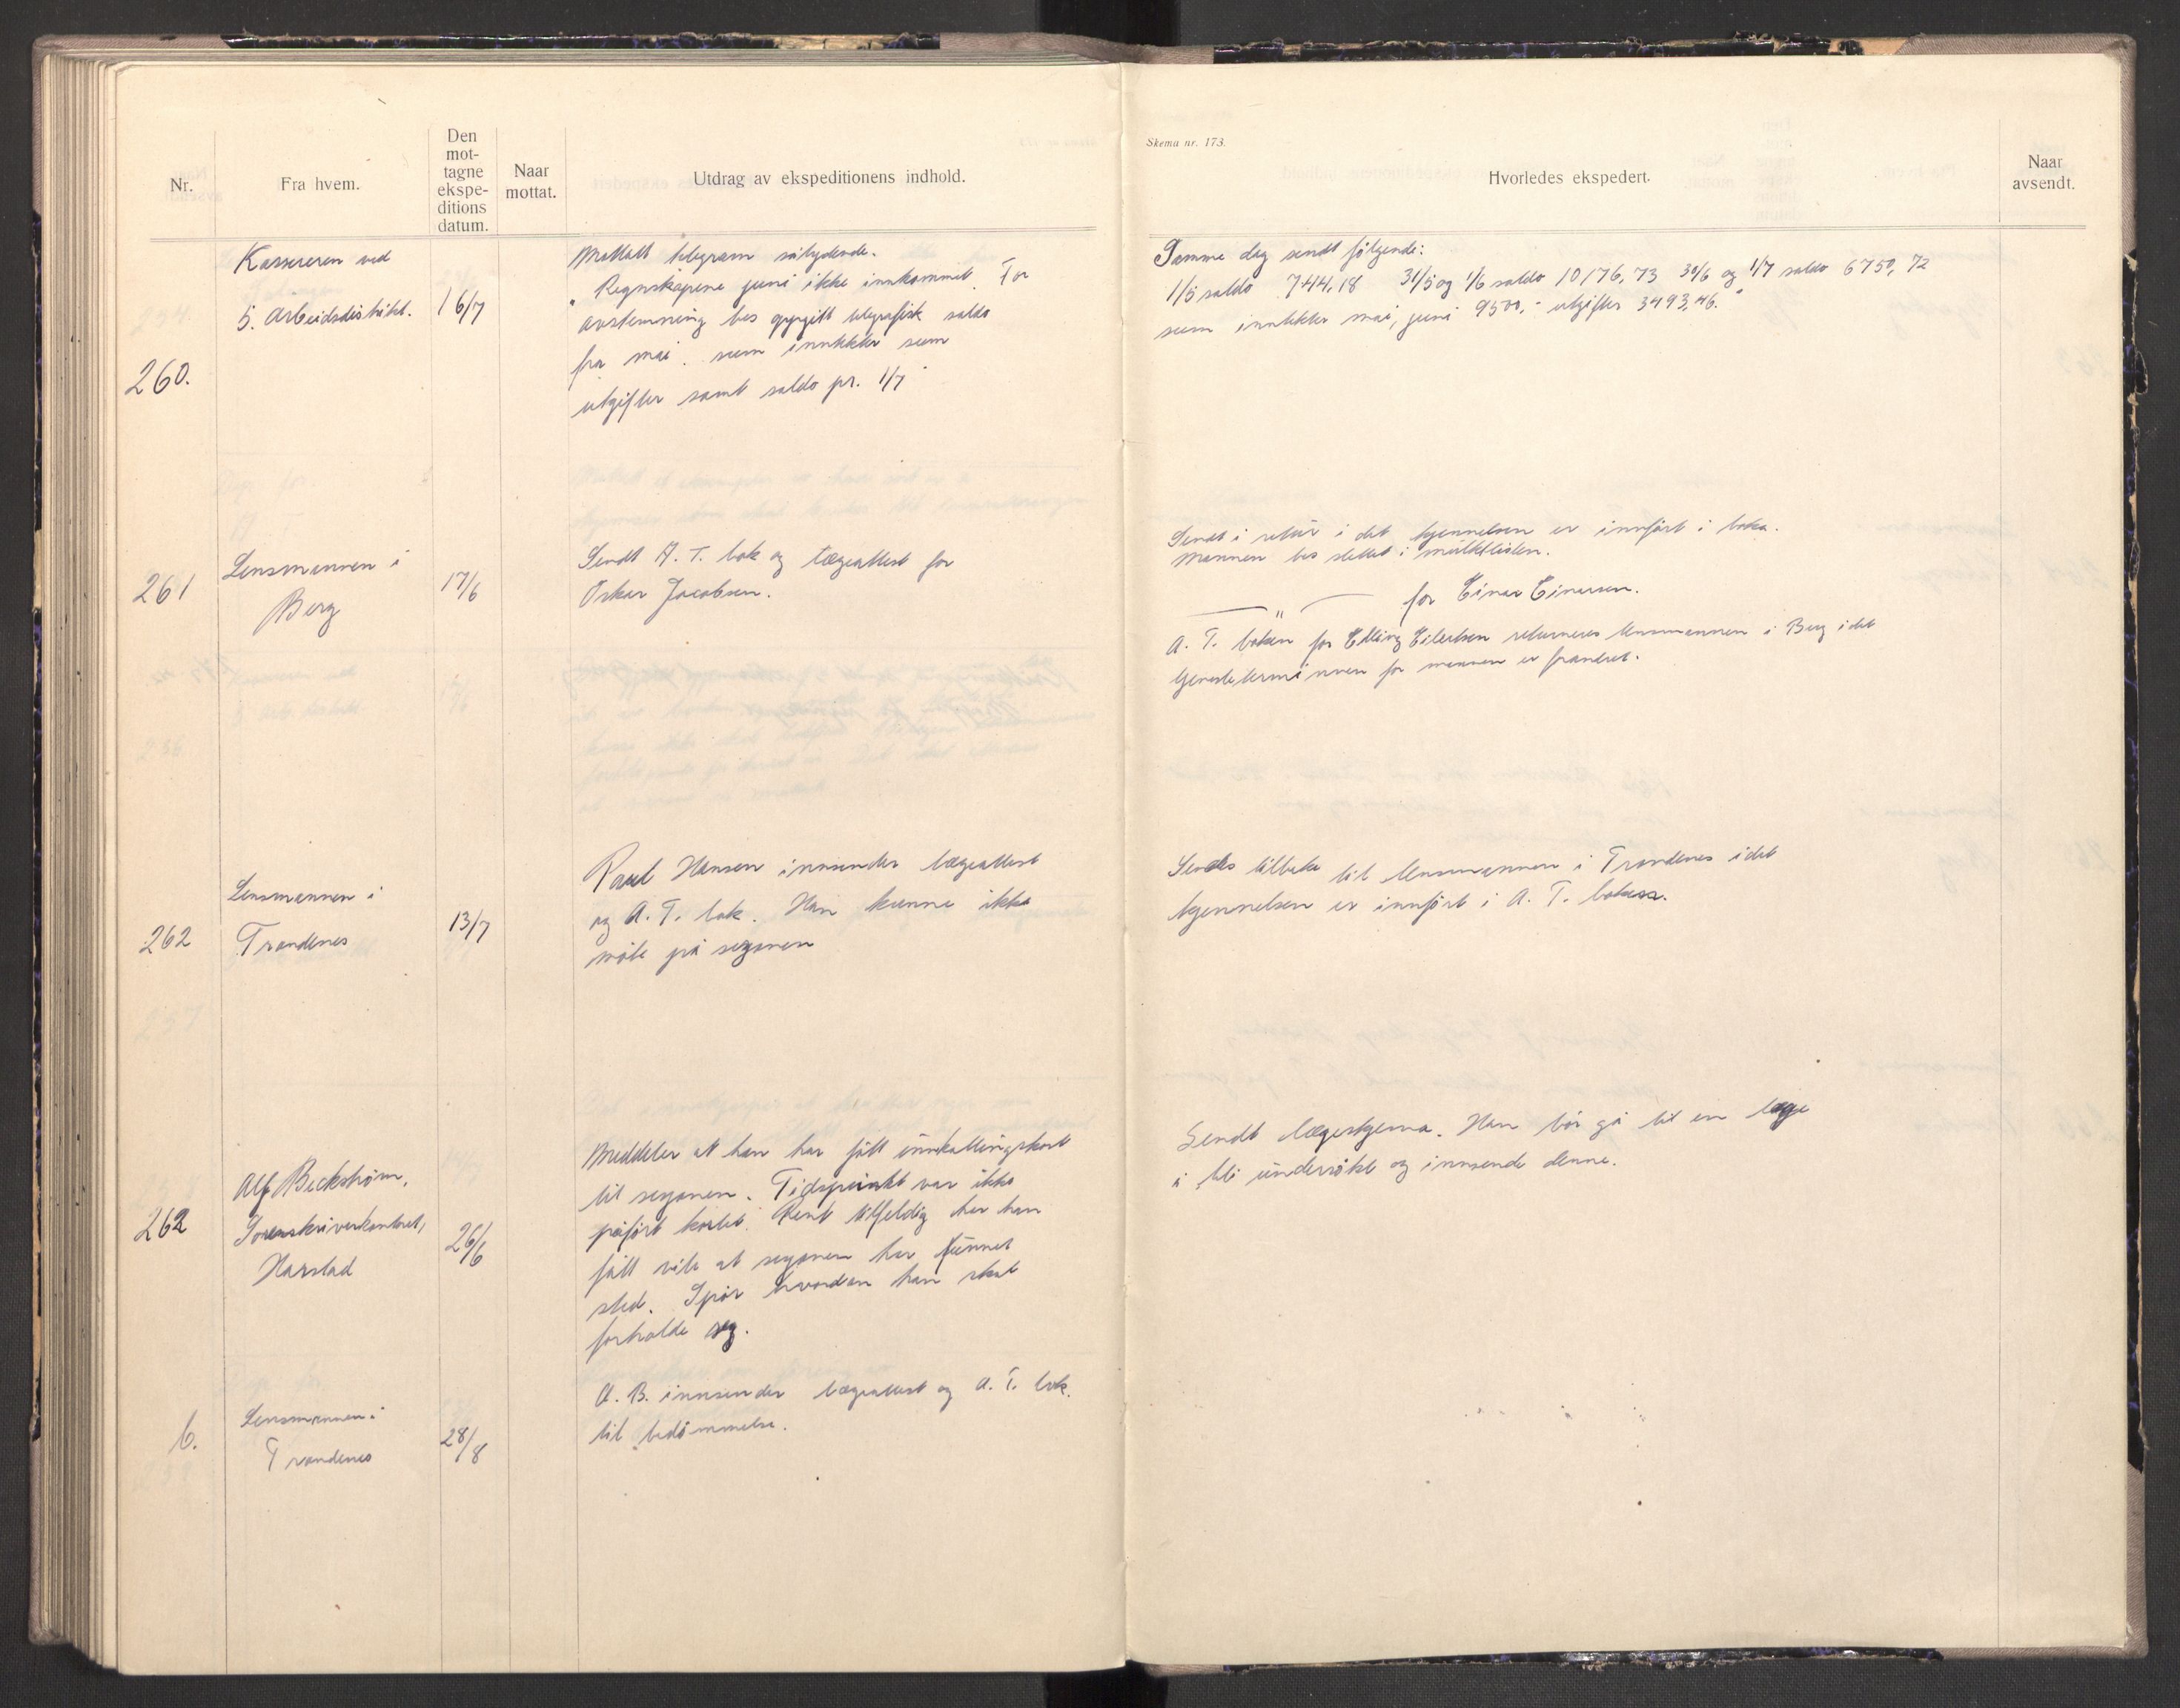 Nr.
Fra hvem.
Den
mot-
tagne
ekspe-
ditions
datum.
Naar
mottat.
Utdrag av ekspeditionens indhold.
Skema nr. 173.
Hvorledes ekspedert.
Naar
avsendt.
260.
Kassereren ved
5. Arbeidsdistrikt.
16/7
Mottatt telegram sålydende.
"Regnskapene juni ikke innkommet. For
avstemning bes oppgitt telegrafisk saldo
fra mai. sum inntekter sum
utgifter samt saldo pr. 1/7"
Samme dag sendt følgende:
1/5 saldo 744,18 31/5 og 1/6 saldo 10176,73 30/6 og 1/7 saldo 6750,72
sum inntekter mai, juni 9500,- utgifter 3493,46."
261
Lensmannen i
Berg
17/6
Sendt A. T. bok og lægeattest for
Oskar Jacobsen.
Sendt i retur i det kjennelsen er innført i boka.
Mannen bes slettet i
— " — for Einar Einarsen.
A. T. boken for Elling Eilertsen returneres lensmannen i Berg idet
tjenesteterminen for mannen er forandret.
262
Lensmannen i
Trondenes
13/7
Paul Hansen innsender lægeattest
og A. T. bok. Han kunne ikke
møte på sesjonen
Sendes tilbake til lensmannen i Trondenes idet
kjennelsen er innført i A. T. boken.
262
Alf Beckstrøm,
Sorenskriverkontoret,
Harstad
26/6
Meddeler at han har fått innkallingskort
til sesjonen. Tidspunkt var ikke
påført kortet. Rent tilfeldig har han
fått vite at sesjonen har funnet
sted. Spør hvordan han skal
forholde seg.
Sendt lægeskjema. Han bør gå til en læge
å bli undersøkt og innsende denne.
b.
Lensmannen i
Trondenes
28/8
A. B. innsender lægeattest og A. T. bok.
til bedømmelse.